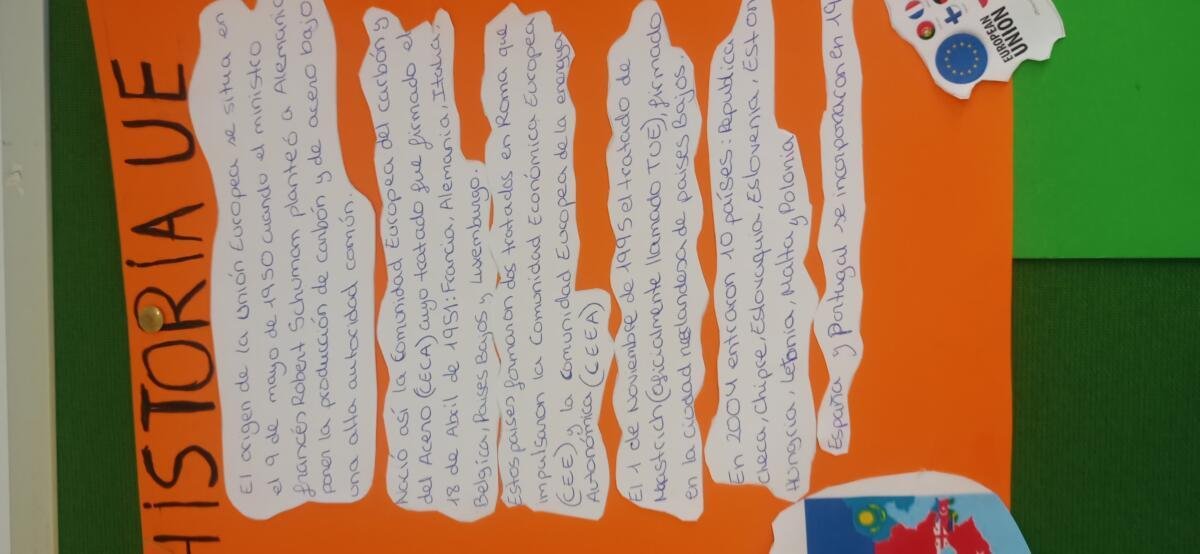 HISTORIA UE
El origen de la Unión Europea se situa en
el 9 de mayo de 1950 cuando el ministro
francés Robert Schuman planteó a Alemania
poner la producción de carbón y de acero bajo
una alta autoridad común.
Nació así la Comunidad Europea del carbón y
del Acero (CECA) cuyo tratado fue firmado el
18 de Abril de 1951: Francia, Alemania, Italia,
Belgica, Paises Bajos y Luxemburgo.
Estos paises formaron dos tratados en Roma que
impulsaron la Comunidad Económica Europea
(CEE), y la Comunidad Europea de la
Autonómica (CEEA)
El 1 de Noviembre de 1995 el tratado de
Mastrich (oficialmente llamado TUE), firmado
en la ciudad neelandesa de países Bajos.
En 2004 entraron 10 países: Republica
checa, Chipre, Eslovaquia, Eslovenia, Eston
Hungria, Letonia, Malta y Polonia
España y Portugal se incorporaron en 19
EUROPEAN
UNION